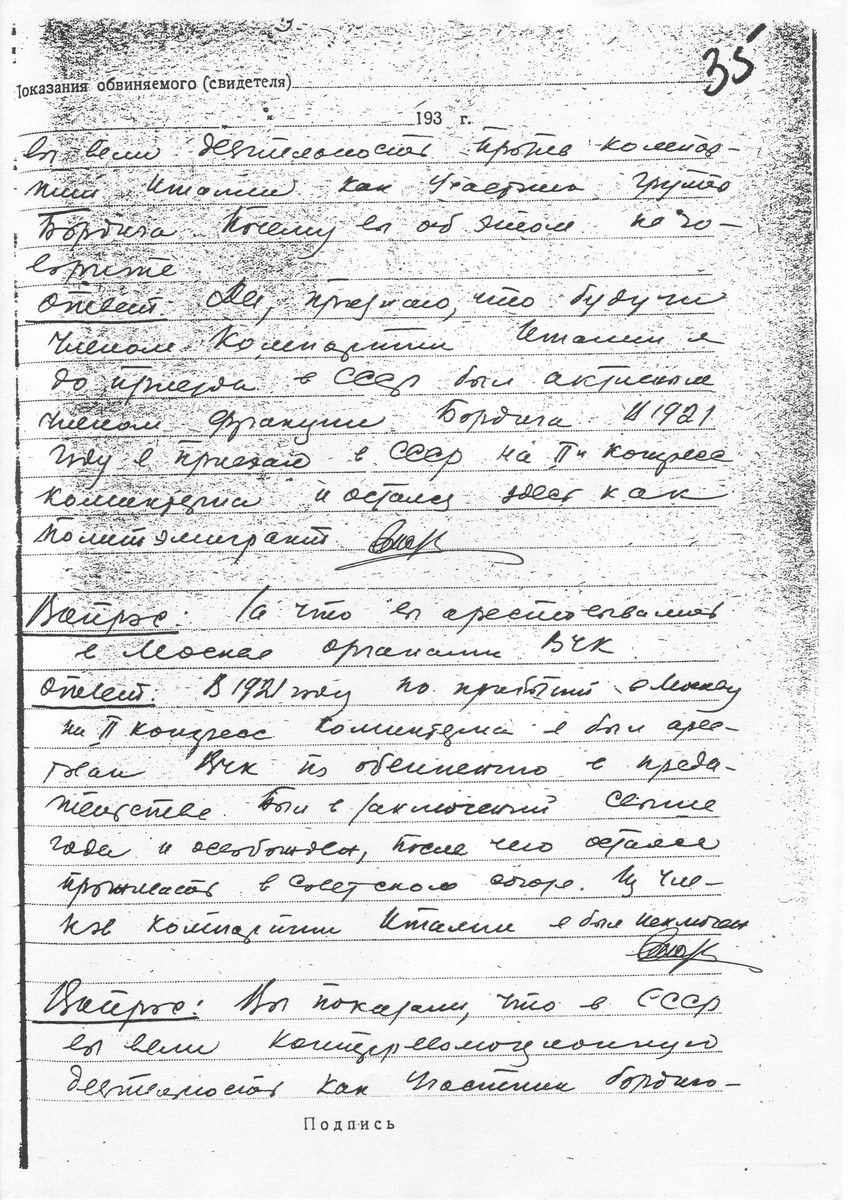 35
Показания обвиняемого (свидетеля)
193 г.
вы вели деятельность против компар-
тии Италии как участник группы
Бордига. Почему вы об этом не го-
ворите
Ответ: Да, признаю, что будучи
членом Компартии Италии я
до приезда в СССР был активным
членом фракции Бордига. В 1921
году я приехал в СССР на II й конгресс
коминтерна и остался здесь как
политэмигрант
Вопрос: За что вы арестовывались
в Москве органами ВЧК.
Ответ: В 1921 году по прибытии в Москву
на II конгресс Коминтерна я был арес-
тован ВЧК по обвинению в преда-
тельстве. Был в заключении свыше
года и освобожден, после чего остался
проживать в Советском союзе. Из чле-
нов компартии Италии я был исключен
Вопрос: Вы показали, что в СССР
вы вели контрреволюционную
деятельность как участник бордиго-
Подпись